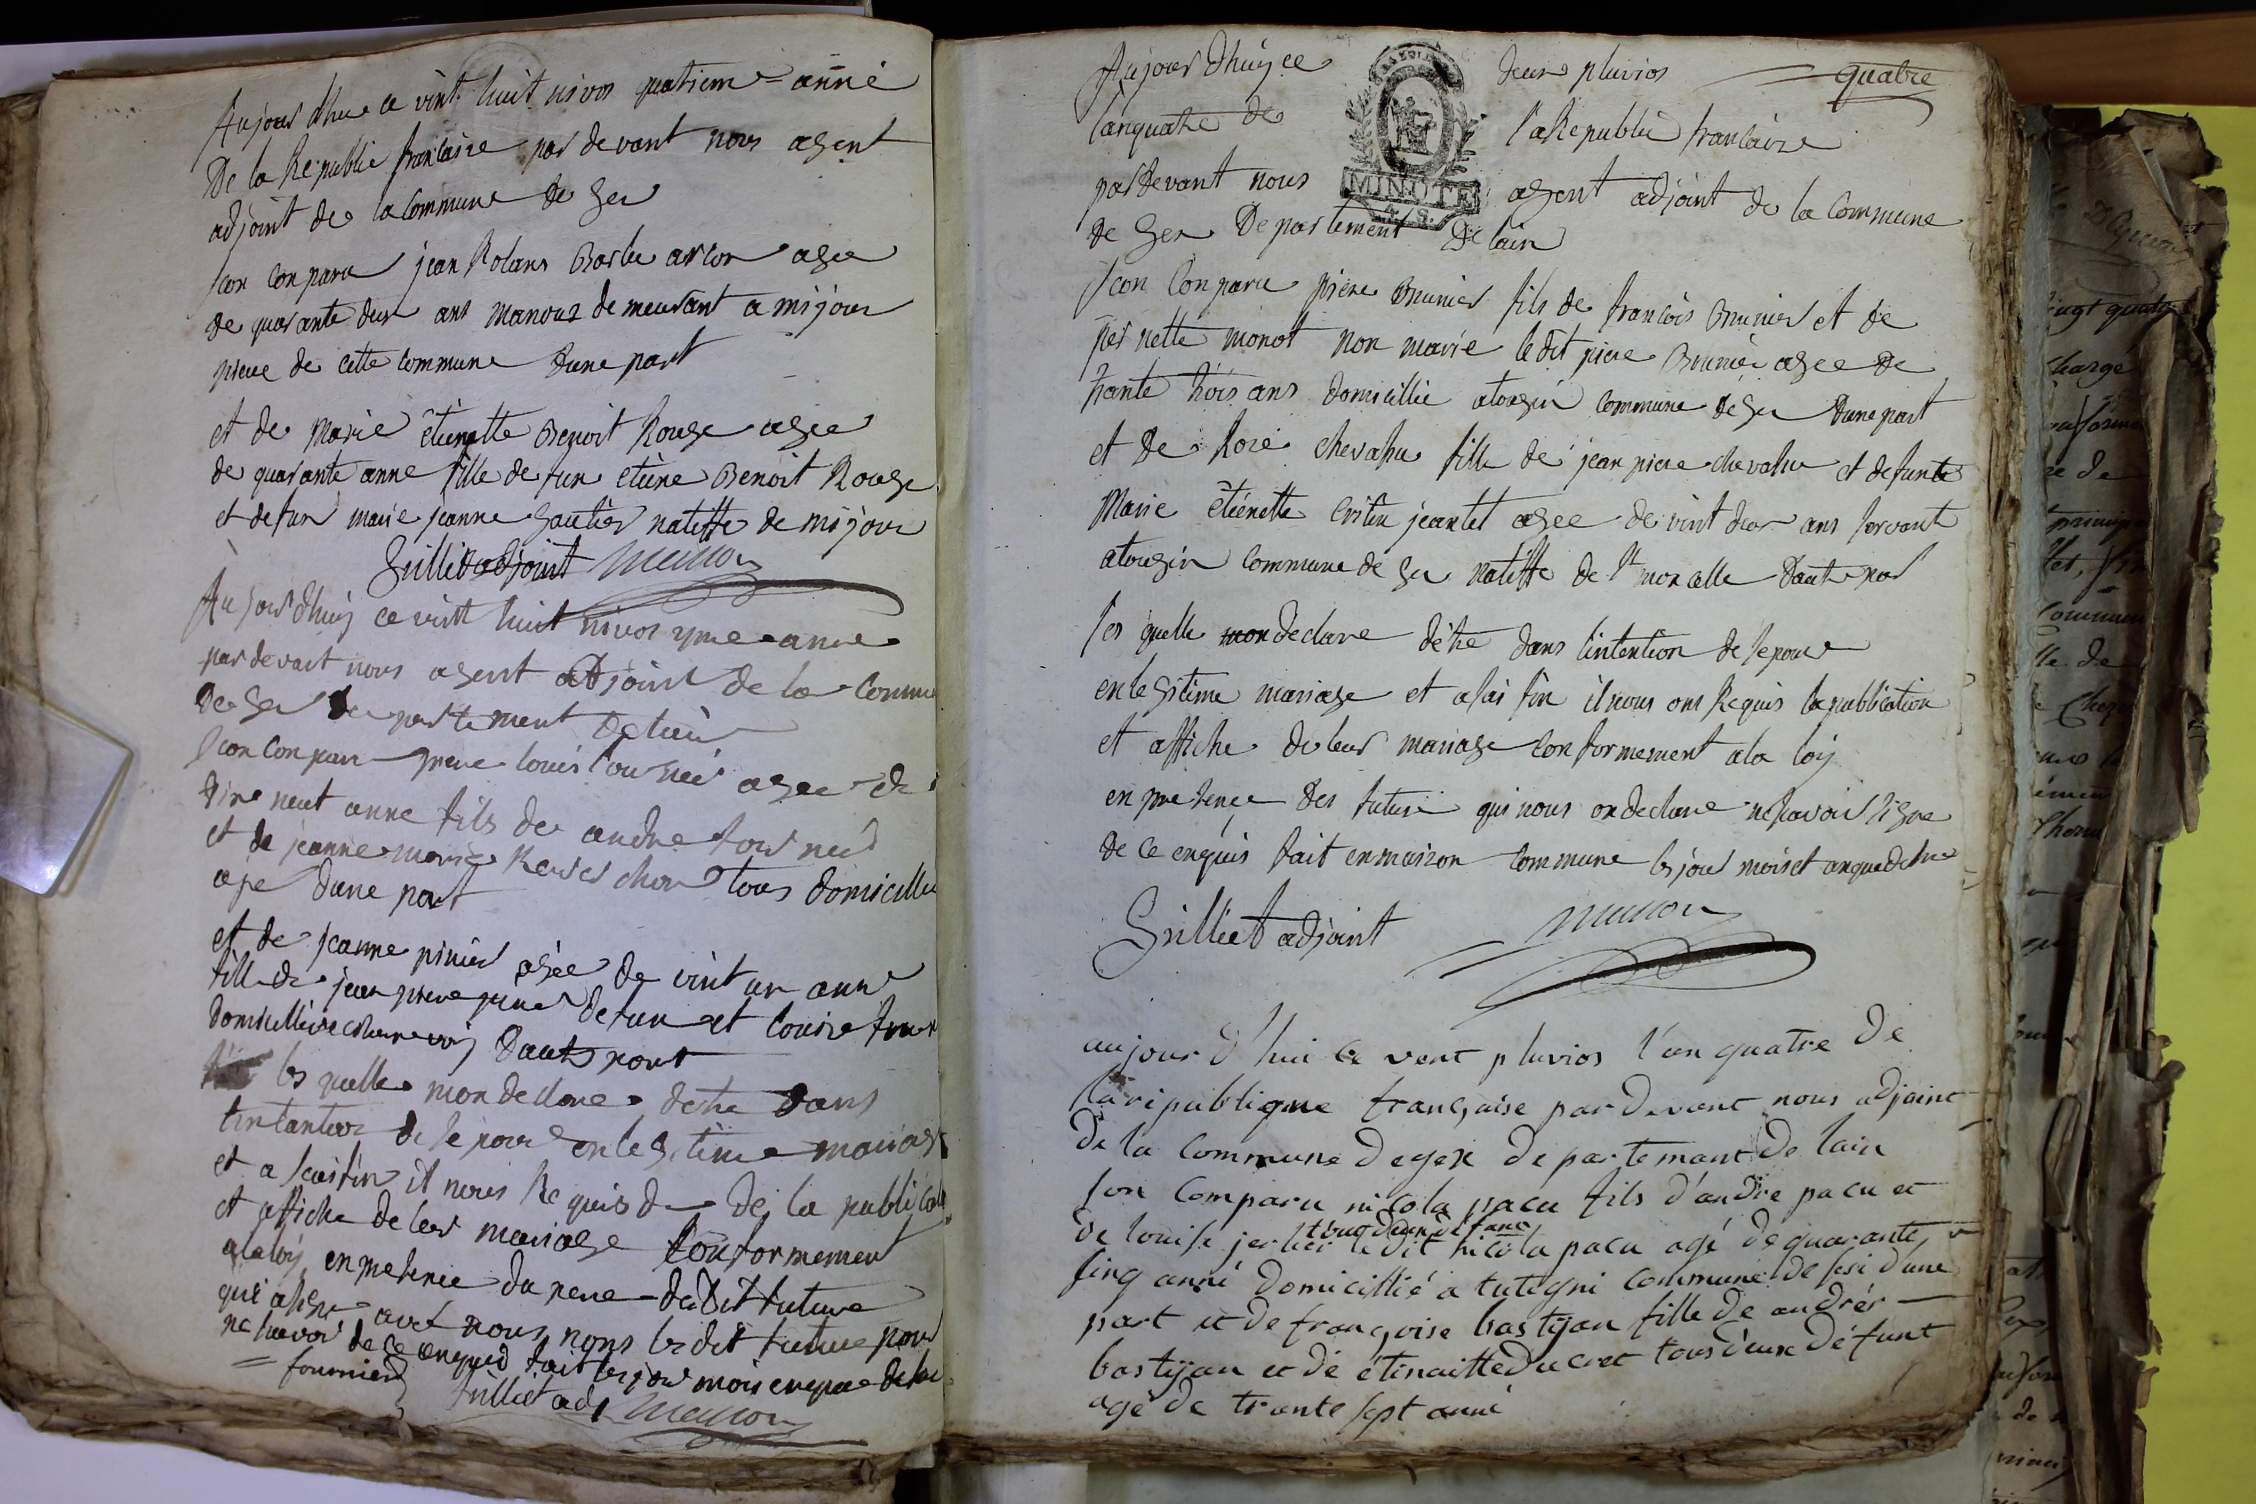 Aujour dhue ce vint huit nivos quatrieme année
De la Republie francaise par devant nous agent
adjoint de la Commune de Gex
son conparu jean Rolans Barbe arcon agee
de quarante deux ans manouz demeurant a mijoux
pieue de cette commune dune part
et de Marie étienette Benoit Rouge agee
de quarante anne fille de fun etiene Benoit Rouge
et defun marie jeanne gautier natiffe de mijoux
Grillietadjoint
Aujourdhuij ce vint huit nivos 4me anne
par devant nous agent adjoint de la Commu
De Gex departement de lain
son conparu piere louis fournié agee de
neuf anne fils de andre fournié
et de jeanne marie tous domicillie
a gex dune part
et de jeanne pinier agée de vint un anne
fille de jean piere pinier defun et louise
domicilliee Dautre part
les quelle mon declare detre dans
lintantion de se poure en legitime mariage
et a saisfin il nous Requis de la publica
et affiche de leur mariage Conformement
a la loij en presence du pere dudit future
qui asigne avec nous nons les dit future pour
ne savoir de ce enquis fait les jour mois enque desu
fournier
Grilliet adj
Aujour dhuij ce deux pluvios quatre
lanquatre de la Republie francaise
pardevant nous MINUTE agent adjoint de la Commune
de Gex Departement De lain
son Conparu piere Brunier fils de francois Brunier et de
pernette monot non marié ledit piere Brunier agee de
trante trois ans domicillie atougin commune de Gex dune part
et de Rose chevalu fille de jean piere chevalu et defunte
Marie étienette Cristin jeantet agee de vint deux ans servante
atougin commune de Gex natiffe de St morcelle Dautre part
les quelle mon declare dètre dans lintention de sepoure
en legitime mariage et asai fin il nous ont Requis la publication
et affiche de leur mariage conformement ala loij
en presence des future qui nous on declare ne savoir signe
de ce enquis fait en maison commune les jour mois et anque desu
Grilliet adjoint
aujour d'hui ce vent pluvios l'an quatre de
la ripublique française pardevant nous adjoint
de la Commune degex departemant de lain
son Comparu nicola pacu fils d'andre pacu et
tous deux defunc
de louise jerlier le dit nicola pacu agé de quarante
sinq anné domicillié a tutegni Commune de sesi d'une
part et de françoise bastijan fille de andrér
bastijan et de étinaitte ducret tous deux défunt
agé de trante sept anné